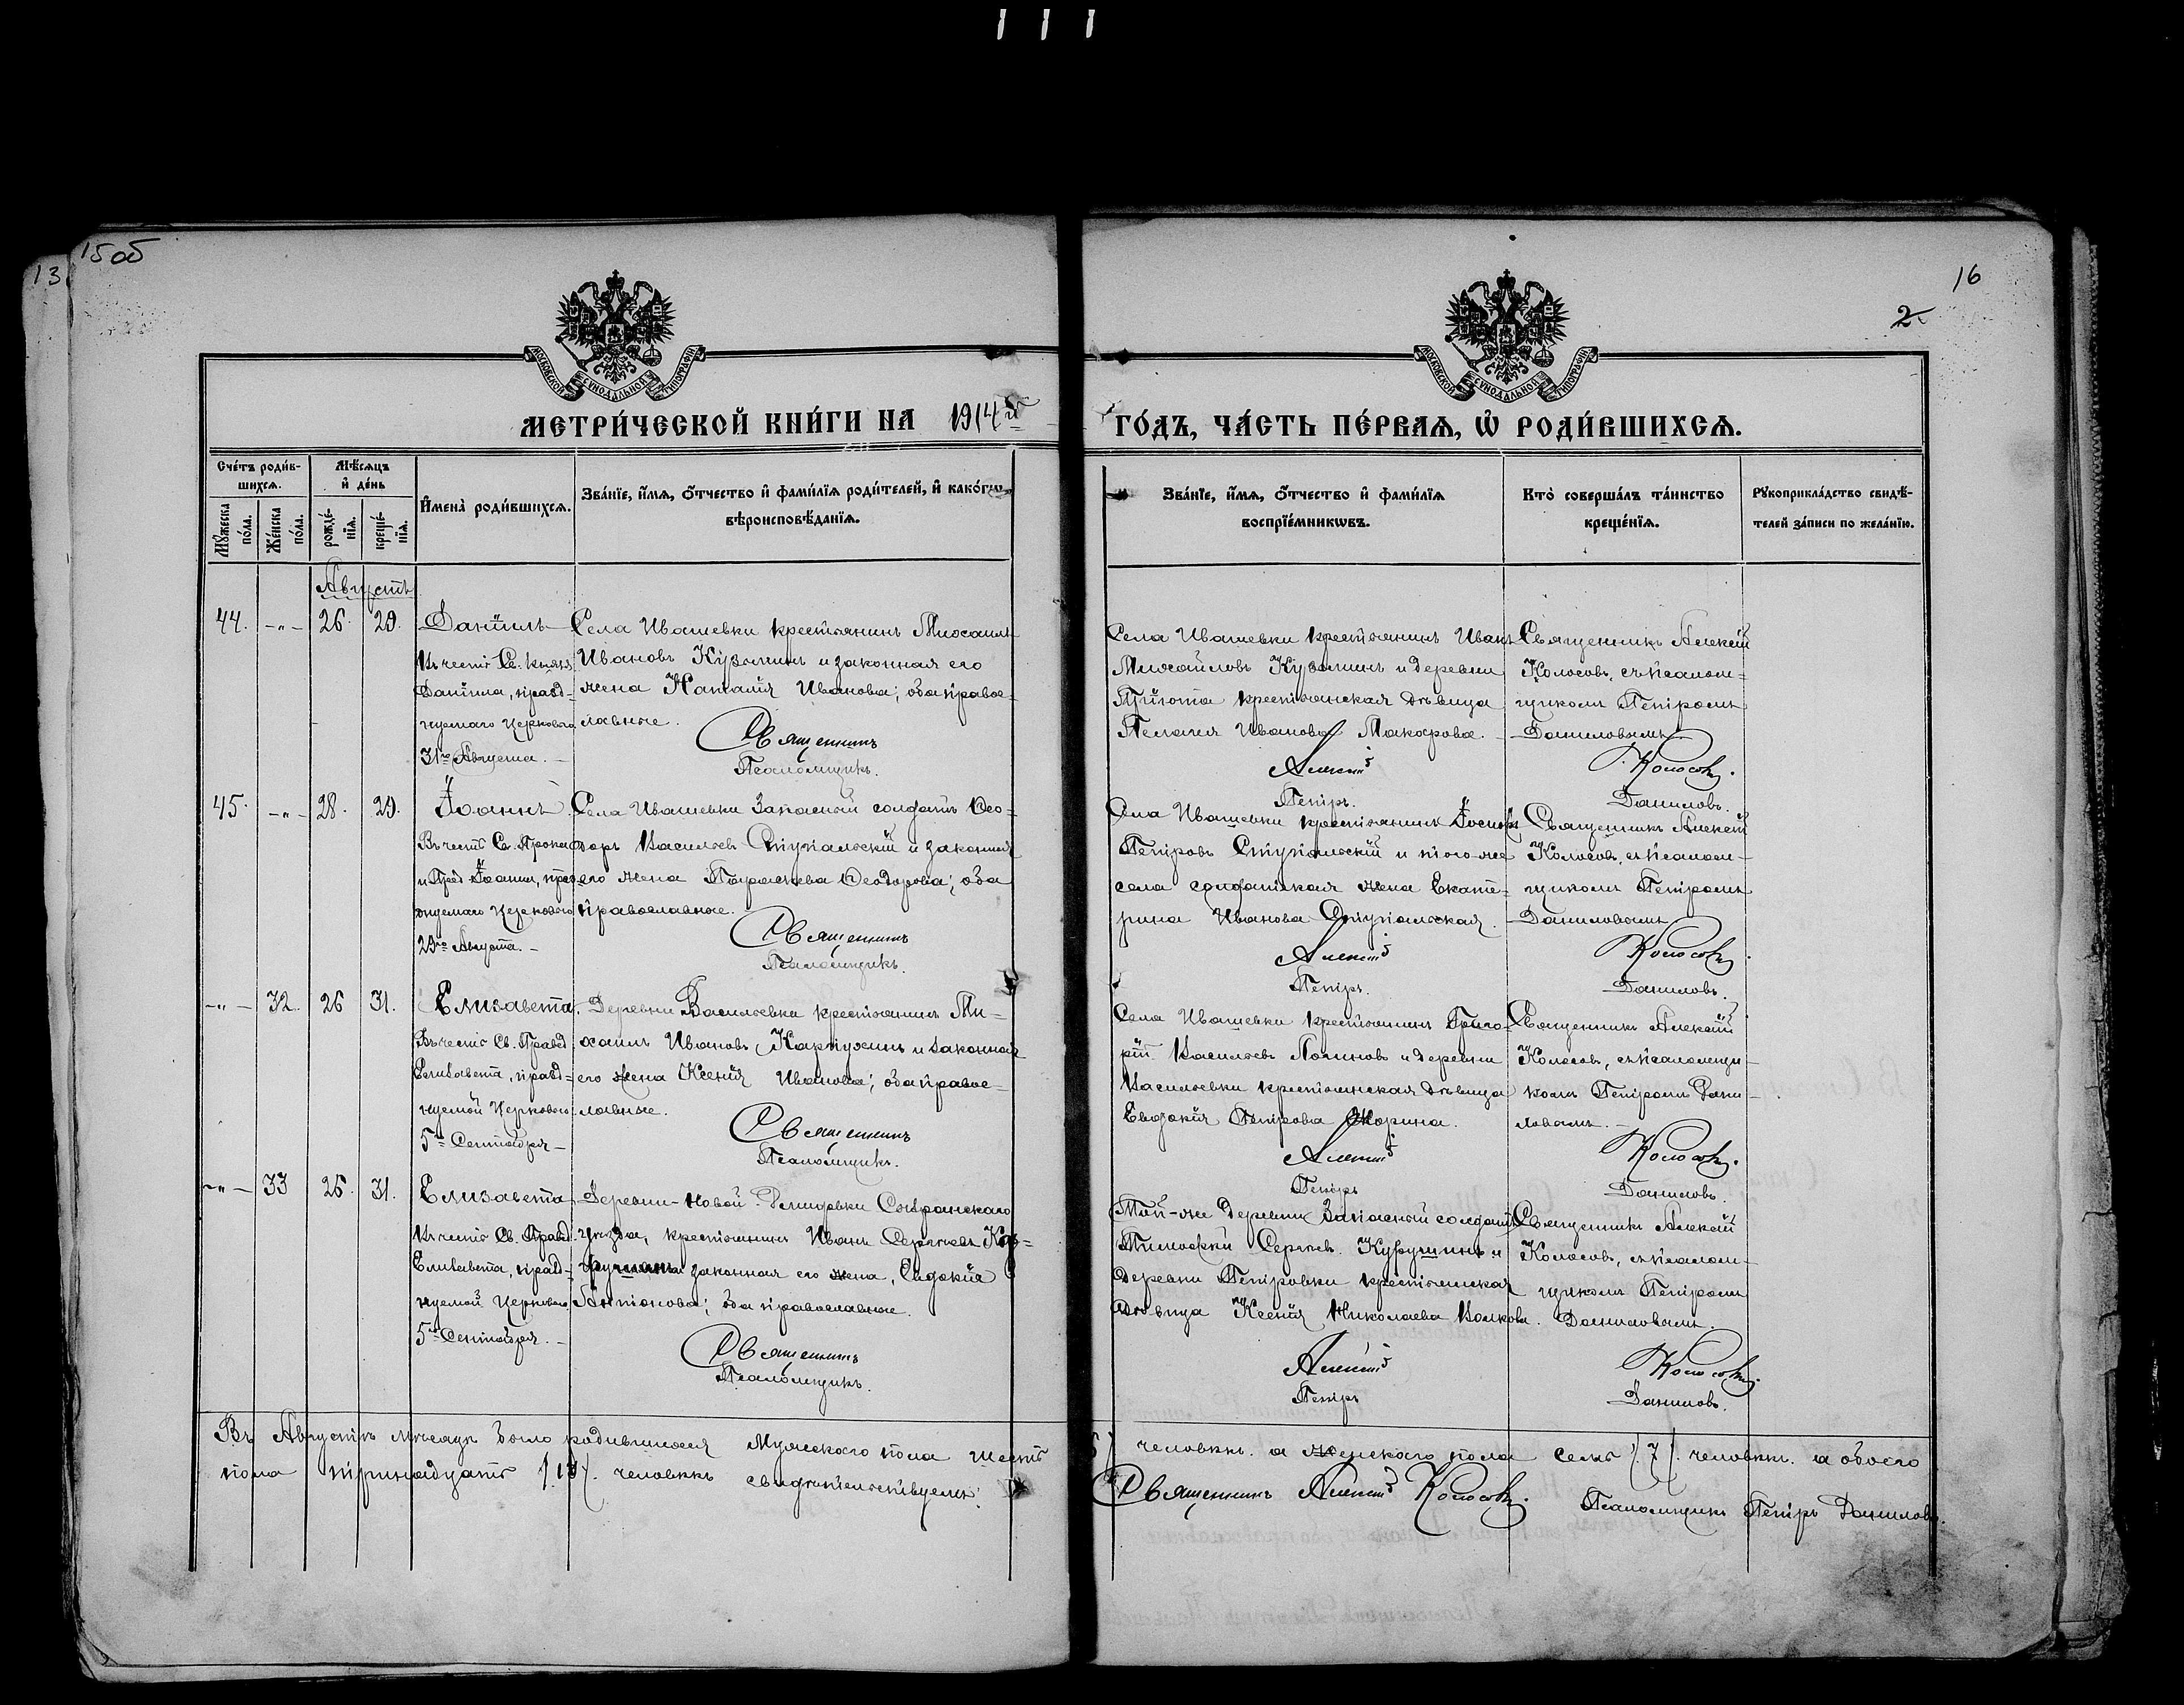 15 об
13
16
2
МОСКОВСКОЙ СѴНОДАЛЬНОЙ ТИПОГРАФІИ
МОСКОВСКОЙ СѴНОДАЛЬНОЙ ТИПОГРАФІИ
МЕТРИ́ЧЕСКОЙ КНИ́ГИ НА 1914й
ГО́ДЪ, ЧА́СТЬ ПЕ́РВАѦ, Ѡ҆ РОДИ́ВШИХСѦ.
Сче́тъ роди́в-
шихсѧ.
Мѣ́сѧцъ
и҆ де́нь
Мꙋ́жеска по́ла.
Же́нска по́ла.
рожде́-нїѧ.
креще́-нїѧ.
И҆мена̀ роди́вшихсѧ.
Зва́нїе, и҆́мѧ, ѻ҆́тчество и҆ фами́лїѧ роди́телей, и҆ како́гѡ
вѣроисповѣ́данїѧ.
Зва́нїе, и҆́мѧ, ѻ҆́тчество и҆ фами́лїѧ
воспрїе́мникѡвъ.
Кто̀ соверша́лъ та́инство
креще́нїѧ.
Рꙋкоприкла́дство свидѣ́-
телей за́писи по жела́нїю.
Августъ
44. -"- 26. 29. Даніилъ
Въ честь Св. князя
Даніила, празд-
нуемаго Церковью
31го Августа. -
Села Ивашевки крестьянинъ Михаилъ
Ивановъ Кузьминъ и законная его
жена Наталія Иванова; оба правос-
лавные.
Священникъ
Псаломщикъ.
Села Ивашевки крестьянинъ Иванъ
Михайловъ Кузьминъ и деревни
крестьянская дѣвица
Пелагея Иванова Макарова.
Алексій
Петръ.
Священникъ Алексій
Колосовъ, съ псалом-
щикомъ Петромъ
Даниловымъ.
Колосовъ.
Даниловъ.
45. -"- 28. 29. Іоаннъ
Въ честь Св. Пророка
и Пред. Іоанна, празд-
днуемаго Церковью
29го Августа. -
Села Ивашевки запасный солдатъ Ѳео-
доръ Васильевъ Ступальскій и законная
его жена Параскева Ѳеодорова; оба
православные.
Священникъ
Псаломщикъ.
Села Ивашевки крестьянинъ Іосифъ
Петровъ Ступальскій и того-же
села солдатская жена Екате-
рина Иванова Ступальская.
Алексій
Петръ.
Священникъ Алексій
Колосовъ, съ псалом-
щикомъ Петромъ
Даниловымъ
Колосовъ
Даниловъ.
-"- 32. 26 31. Елизавета.
Въ честь Св. Правед
Елизаветы, празд-
нуемой Церковью
5го Сентября -
Деревни Васильевки крестьянинъ Ми-
хаилъ Ивановъ Карпухинъ и законная
его жена Ксенія Иванова; оба правос-
лавные.
Священникъ
Псаломщикъ.
Села Ивашевки крестьянинъ Григо-
рій Васильевъ Логиновъ и деревни
Васильевки крестьянская дѣвица
Евдокія Петрова
Алексій
Петръ
Священникъ Алексій
Колосовъ, съ псаломщи-
комъ Петромъ Дани-
ловымъ. -
Колосовъ.
Даниловъ.
-"- 33 25. 31. Елизавета
Въ честь Св. Правед.
Елизаветы, празд-
нуемой Церковью
5го Сентября. -
Деревни-Новой Сызранскаго
уѣзда, крестьянинъ Иванъ Сергѣевъ
законная его жена, Евдокія
Антонова; оба православные.
Священникъ
Псаломщикъ.
Той-же деревни запасный солдатъ
Тимофей Сергѣевъ и
деревни Петровки крестьянская
дѣвица Ксенія Николаева Волкова.
Алексій
Петръ
Священникъ Алексій
Колосовъ, съ псалом-
щикомъ Петромъ
Даниловымъ.
Колосовъ.
Даниловъ.
Въ Августѣ мѣсяцѣ было родившихся мужескаго пола шесть 6/ человѣкъ. а женскаго пола семь /7/. человѣкъ. а обоего
пола тринадцать /13/. человѣкъ свидѣтельствуемъ: Священникъ Алексій Колосовъ. Псаломщикъ Петръ Даниловъ.